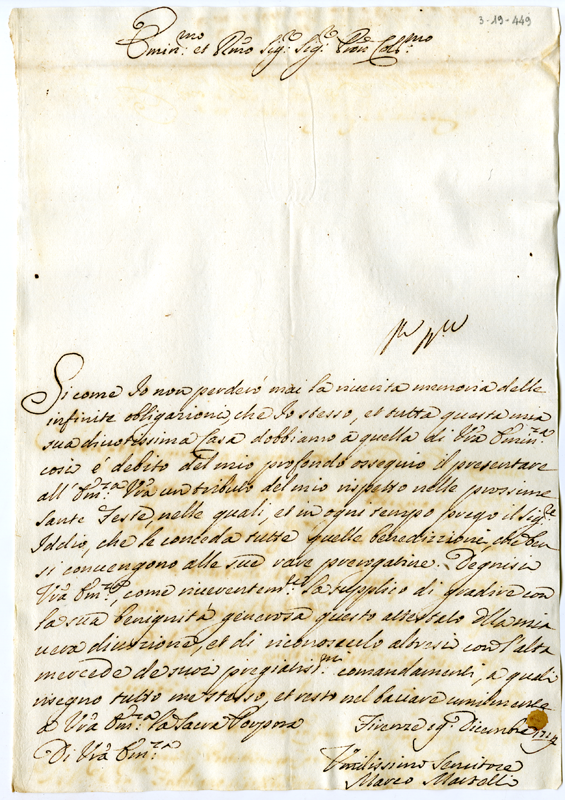 3-19-449
Emin.mo et Rmo Sig.r Sig.r Pron Coll.mo
Si come Io non perderó mai la riverita memoria delle
infinite obligazioni che Io stesso, et tutta questa mia
sua divotissima Casa dobbiamo á quella di Vrã Emin.za
cosi é debito del mio profondo ossequio il presentare
all' Em.za Vrã un tributo del mio rispetto nelle prossime
Sante Feste, nelle quali, et in ogni tempo prego il Sig.re
Iddio, che le conceda tutte quelle benedizioni, che ben
si convengono alle sue rare prerogative. Degnisi
Vrã Em.za come riverentem.te la supplico di gradire con
la sua benignità generosa questo attestato della mia
vera divozione, et di riconoscerlo altresi con l'alta
mercede de suoi pregiatiss.mi comandamenti, a quali
rasegno tutto me stesso, et resto nel baciare umilmente
a Vrã Em.za la Sacra Porpora Firenze Dicembre
Di Vrã Em.za
Umilissimo Servitore
Marco Martelli